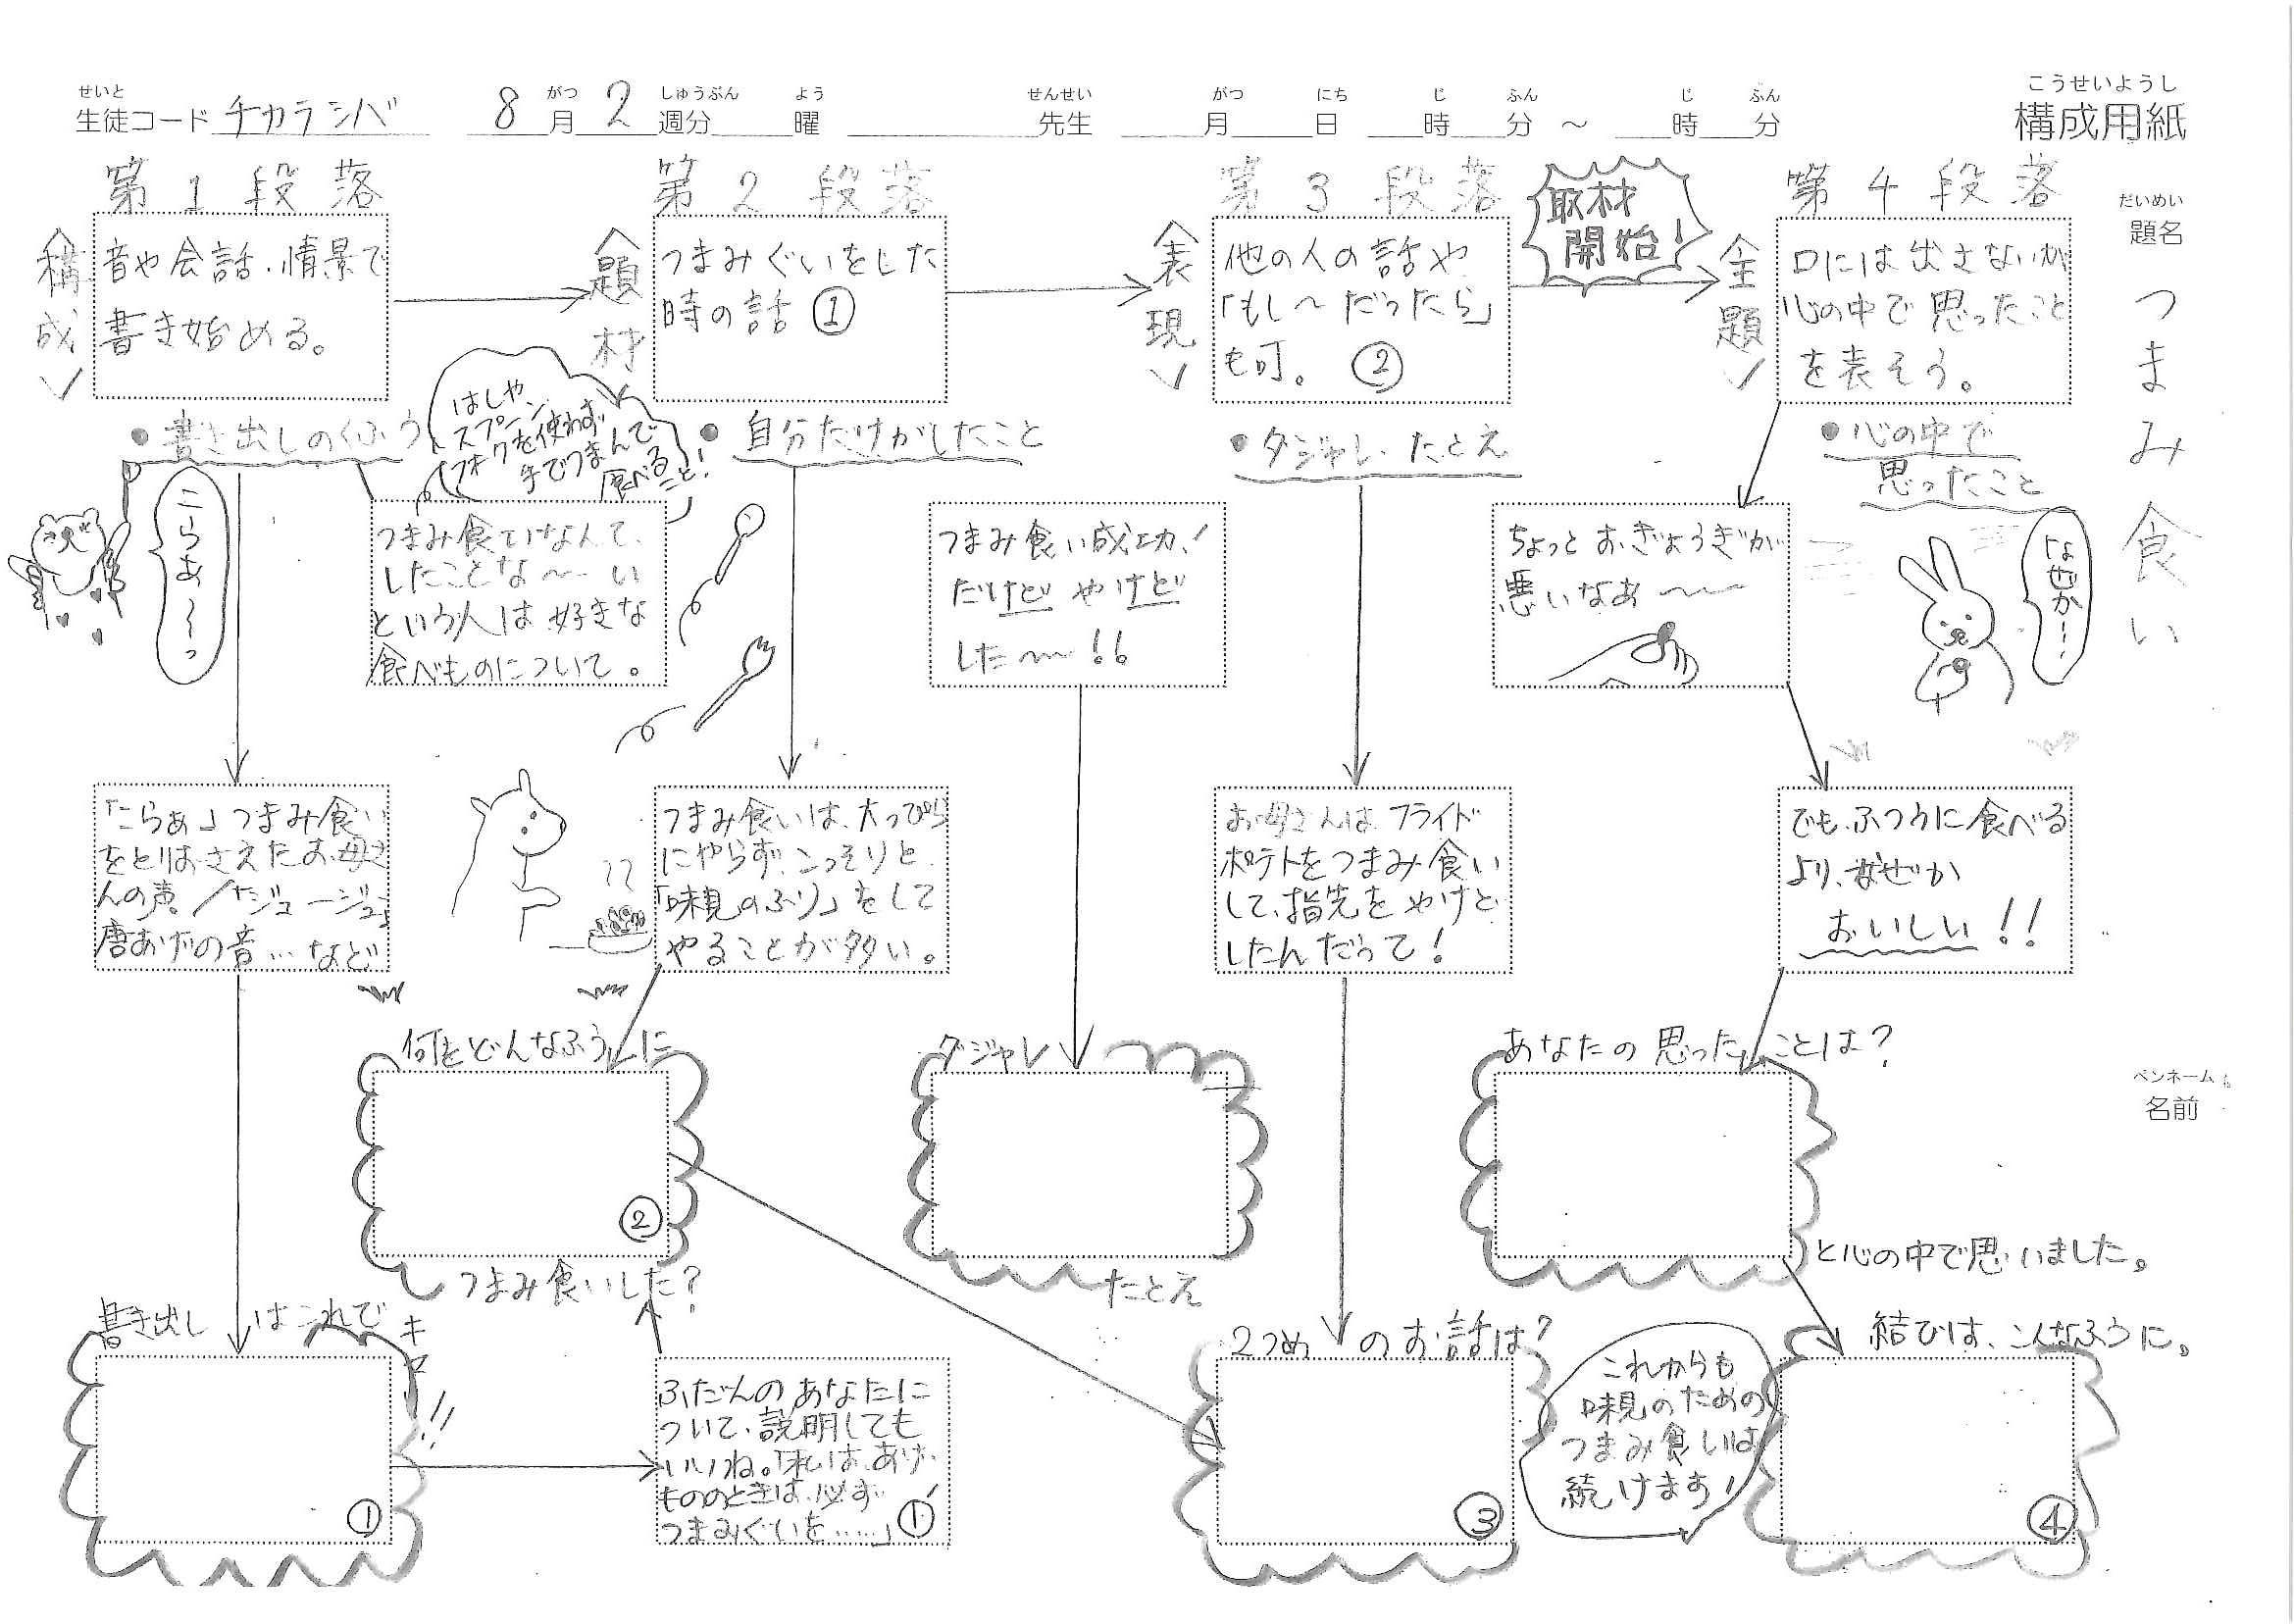 こうせいようし
構成用紙
せいと
生徒コード チカラシバ
がつ しゅうぶん よう
8月2週分 曜
せんせい
先生
がつ にち じ ふん じ ふん
月 日 時 分 ～ 時 分
だいめい
題名
つまみ食い
ペンネーム
名前
第1段落
構成
音や会話、情景で
書き始める。
第2段落
題材
つまみぐいをした
時の話 ①
第3段落
表現
他の人の話や
「もし～だったら」
も可。 ②
取材
開始！
第4段落
主題
口には出さないが
心の中で思ったこと
を表そう。
●書き出しのくふう
はしや、
スプーン、
フォークを使わず
手でつまんで
食べる
こと！
●自分だけがしたこと
●ダジャレ、たとえ
●心の中で
思ったこと
こらあ～っ
つまみ食いなんて、
したことな～い
という人は好きな
食べものについて。
つまみ食い成功、！
だけど やけど
した～！！
ちょっとおぎょうぎが
悪いなあ～
なぜか…
「こらぁ」つまみ食い
をとりおさえたお母さ
んの声／「ジュージュー」
唐あげの音…など
つまみ食いは、大っぴら
にやらず、こっそりと、
「味見のふり」をして
やることが多い。
お母さんはフライド
ポテトをつまみ食い
して、指先をやけど
したんだって！
でも、ふつうに食べる
より、なぜか
おいしい！！
何をどんなふうに
②
つまみ食いした？
ダジャレ
たとえ
あなたの思ったことは？
と心の中で思いました。
書き出しはこれで
キマ
！！
①
ふだんのあなたに
ついて、説明しても
いいね。「私は、あげ
もののときは、必ず
つまみぐいを……」
①'
2つめのお話は？
③
これからも
味見のための
つまみ食いは
続けます！
結びは、こんなふうに。
④